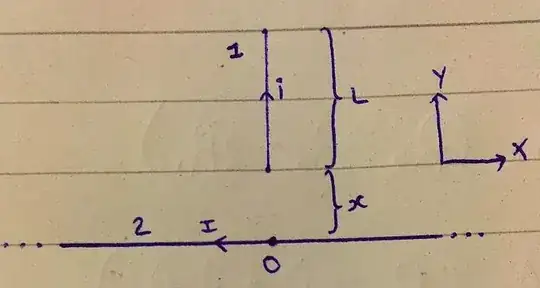 1
i
L
Y
X
x
2
I
O